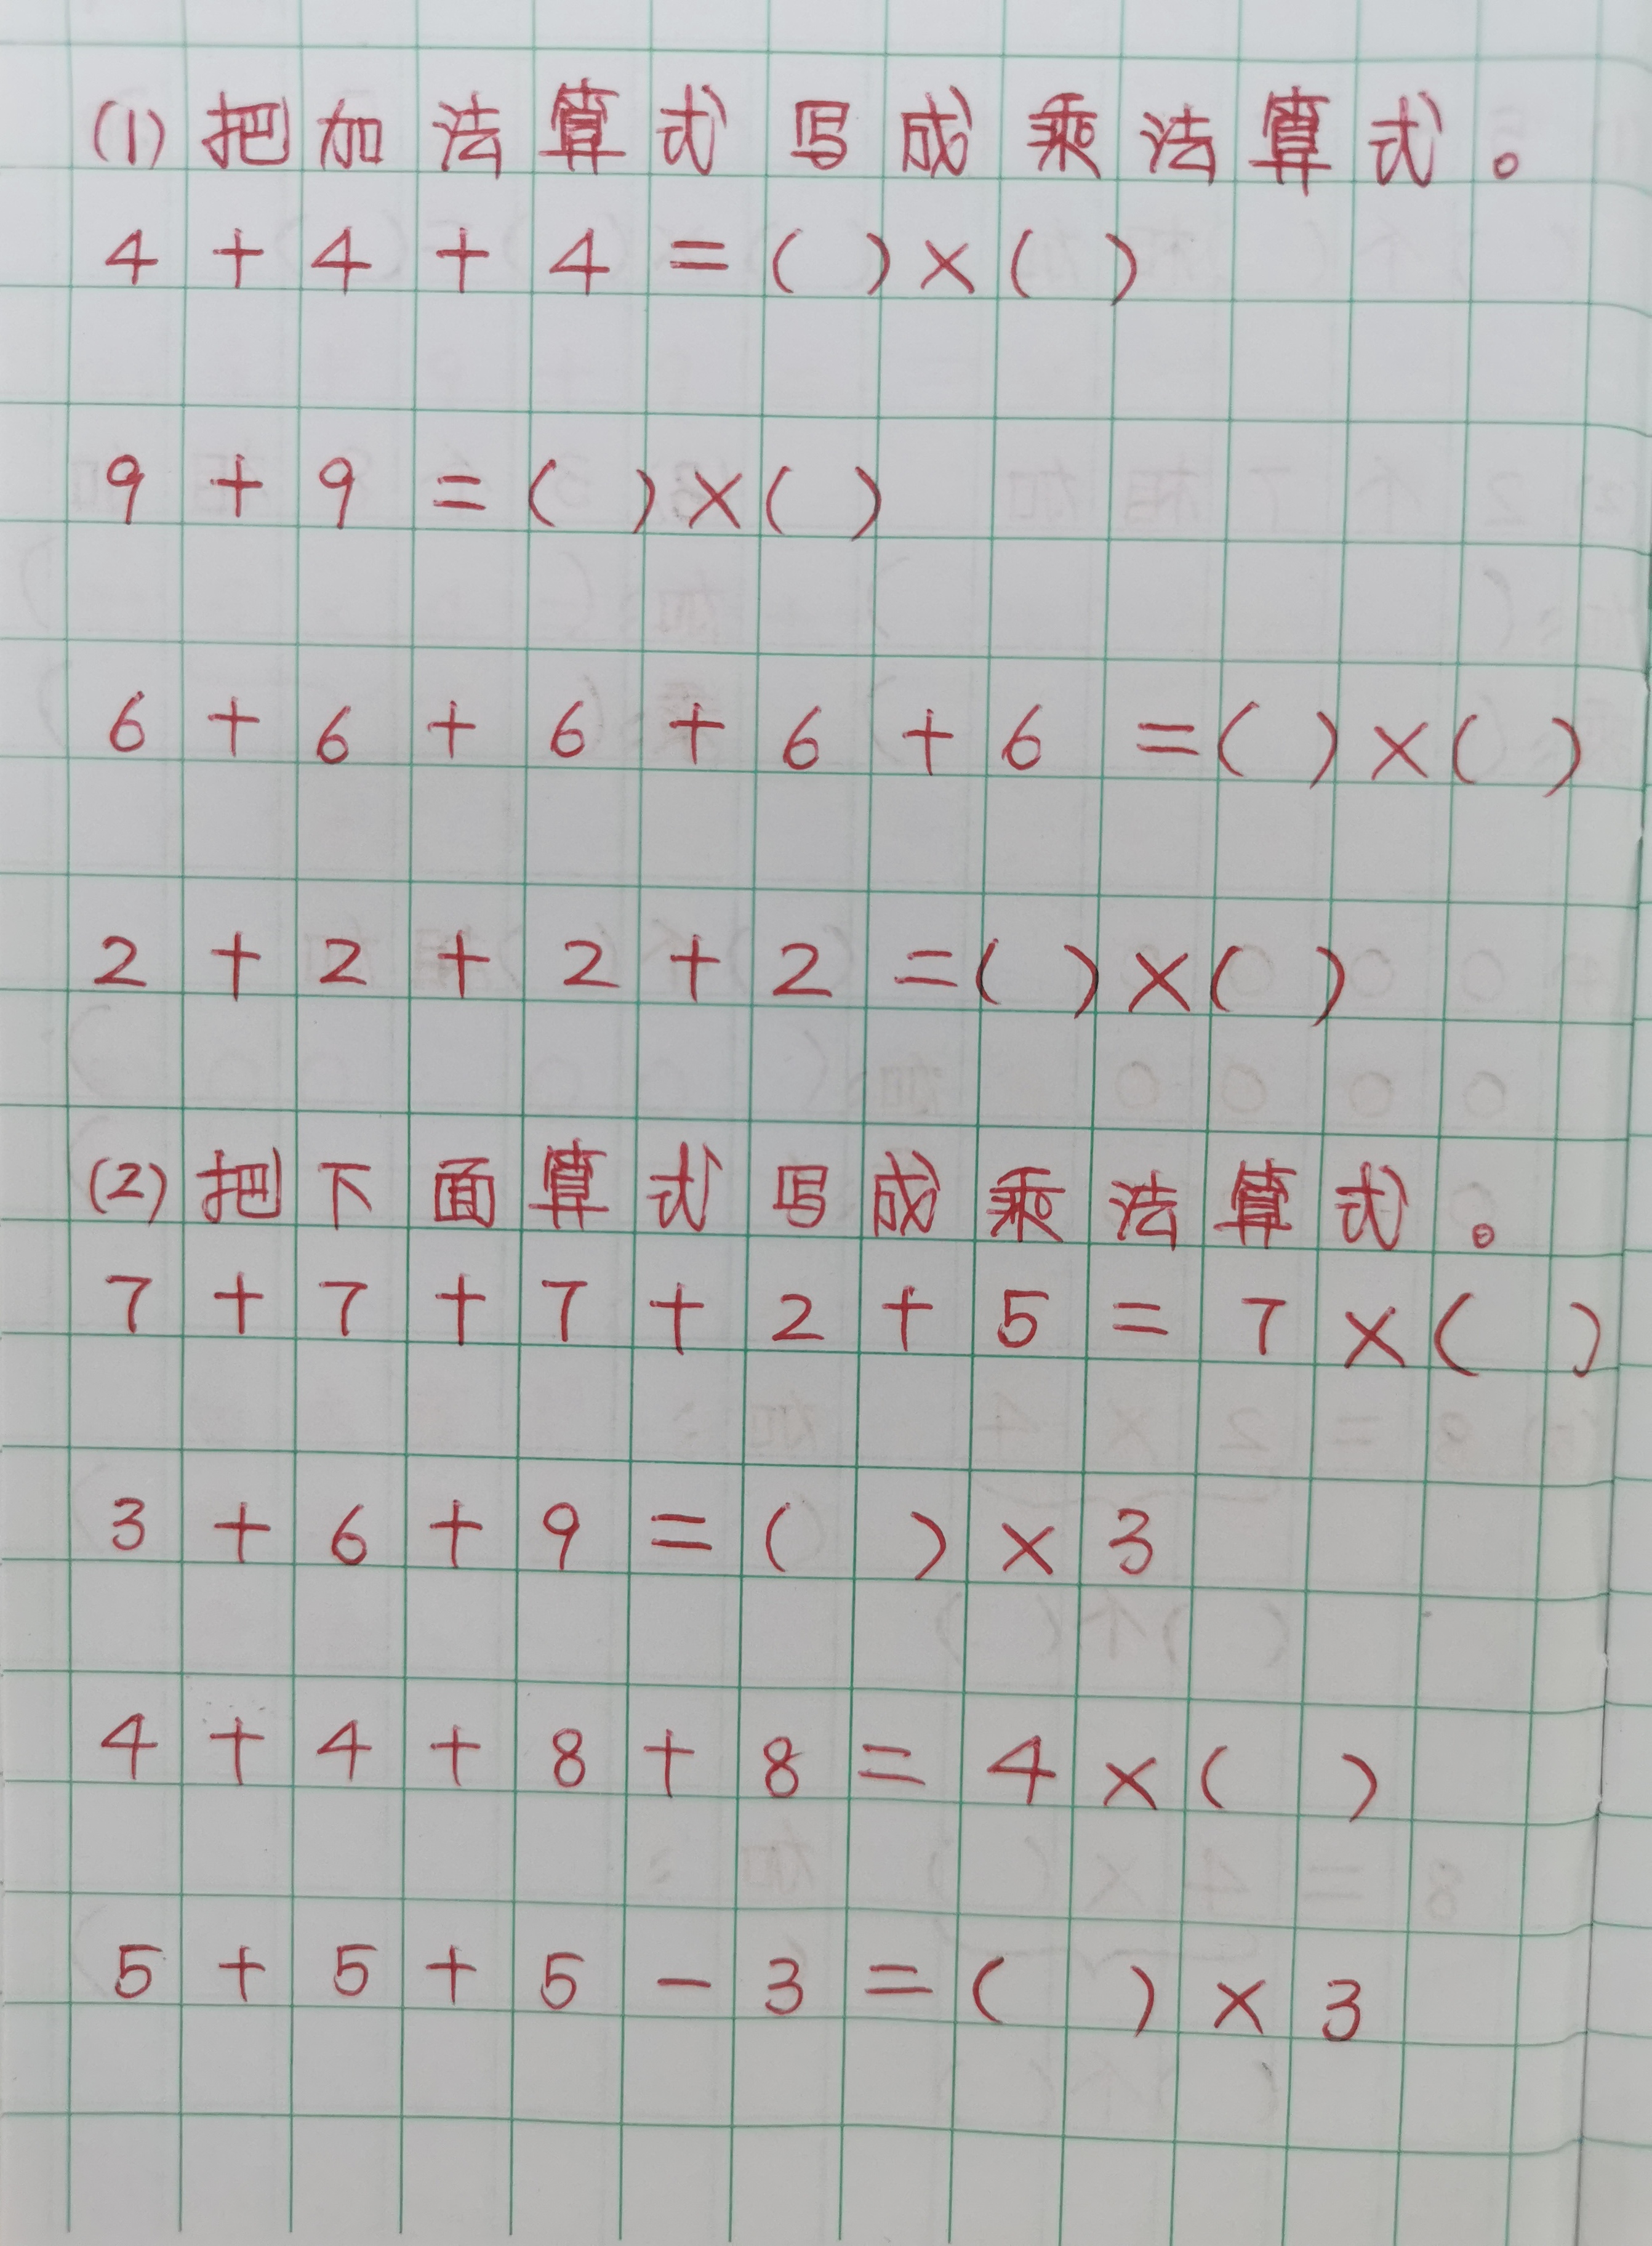 (1)把加法算式写成乘法算式。
4+4+4=( )×( )
9+9=( )×( )
6+6+6+6+6=( )×( )
2+2+2+2=( )×( )
(2)把下面算式写成乘法算式。
7+7+7+2+5=7×( )
3+6+9=( )×3
4+4+8+8=4×( )
5+5+5-3=( )×3